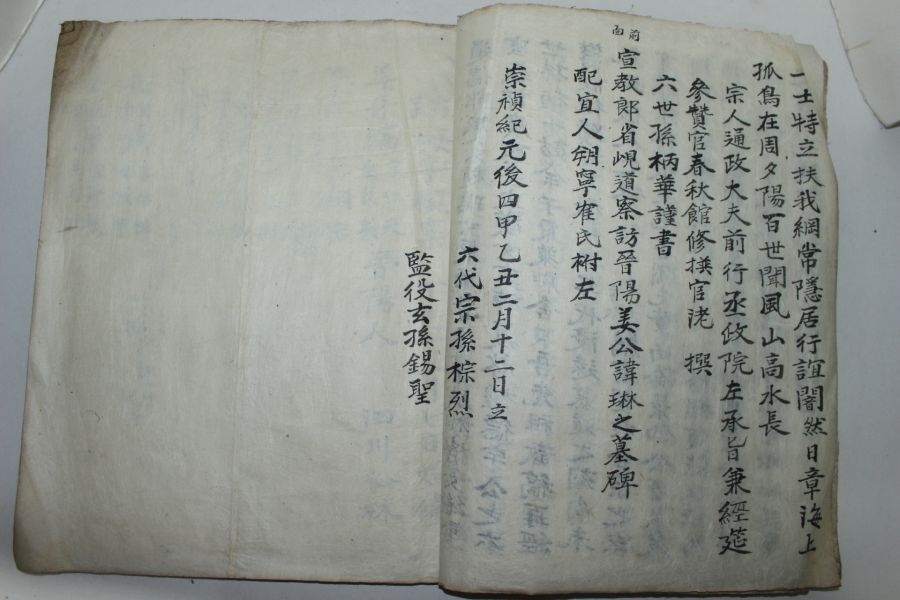 一士特立扶我綱常隱居行誼闇然日章海上
孤島在周夕陽百世聞風山高水長
宗人通政大夫前行丞政院左承旨兼經筵
參贊官春秋館修撰官㳣 撰
六世孫柄華謹書
前面
宣教郎省峴道察訪晉陽姜公諱琳之墓碑
配宜人朔寧崔氏祔左
崇禎紀元後四甲乙丑二月十二日立
六代宗孫棕烈
監役玄孫錫聖